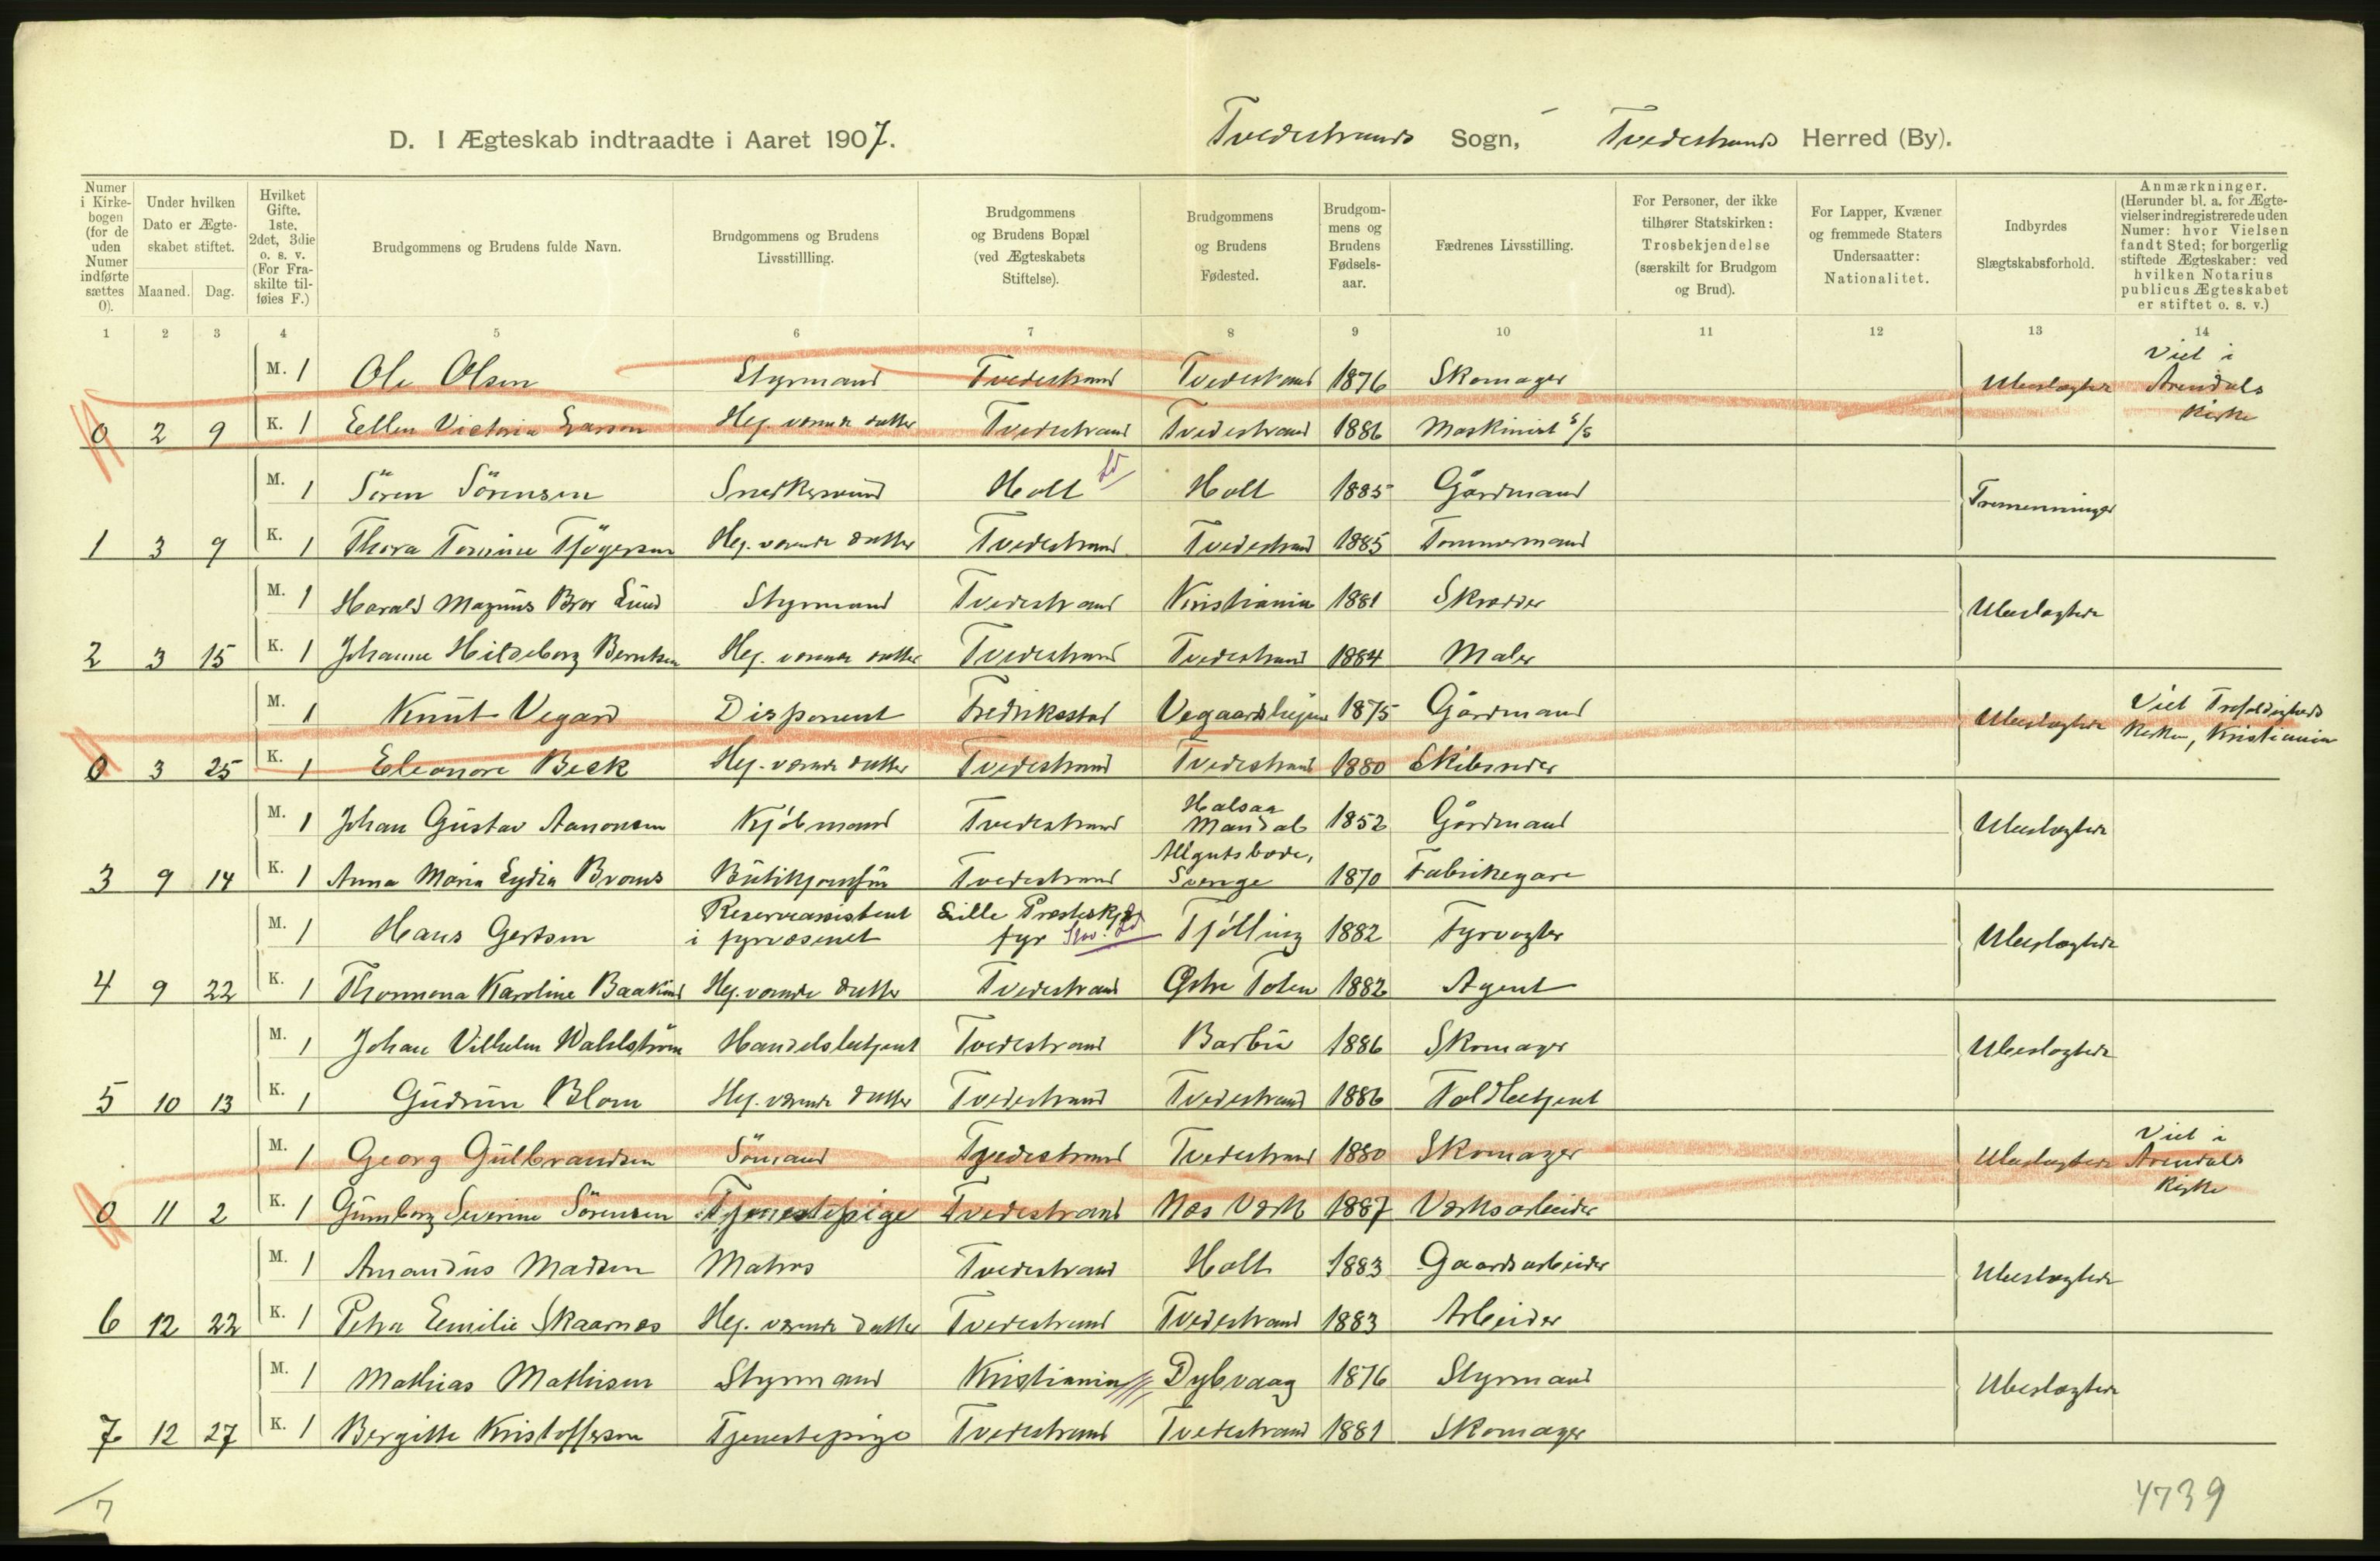 D. I Ægteskab indtraadte i Aaret 1907. Tvedestrands Sogn, Tvedestrands Herred (By).
Numer i Kirkebogen (for de uden Numer indførte sættes 0).
Under hvilken Dato er Ægteskabet stiftet.
Maaned. Dag.
Hvilket Gifte. 1ste, 2det, 3die o. s. v. (For Fraskilte tilføies F.)
Brudgommens og Brudens fulde Navn.
Brudgommens og Brudens Livsstillling.
Brudgommens og Brudens Bopæl (ved Ægteskabets Stiftelse).
Brudgommens og Brudens Fødested.
Brudgommens og Brudens Fødselsaar.
Fædrenes Livsstilling.
For Personer, der ikke tilhører Statskirken: Trosbekjendelse (særskilt for Brudgom og Brud).
For Lapper, Kvæner og fremmede Staters Undersaatter: Nationalitet.
Indbyrdes Slægtskabsforhold.
Anmærkninger. (Herunder bl. a. for Ægtevielser indregistrerede uden Numer: hvor Vielsen fandt Sted; for borgerlig stiftede Ægteskaber: ved hvilken Notarius publicus Ægteskabet er stiftet o. s. v.)
1 2 3 4 5 6 7 8 9 10 11 12 13 14
M. 1 Ole Olsen Styrmand Tvedestrand Tvedestrand 1876 Skomager Ubeslægtede Viet i Arendals Kirke
0 2 9 K. 1 Ellen Victoria Hej. værende datter Tvedestrand Tvedestrand 1886 Maskinist s/s
M. 1 Sören Sörensen Snedkersvend Holt Ld Holt 1885 Gårdmand Tremenninger
1 3 9 K. 1 Thora Hej. værende datter Tvedestrand Tvedestrand 1885 Tømmermand
M. 1 Harald Magnus Bror Lund Styrmand Tvedestrand Kristiania 1881 Skrædder Ubeslægtede
2 3 15 K. 1 Johanne Hildeborg Berntsen Hej. værende datter Tvedestrand Tvedestrand 1884 Maler
M. 1 Knut Vegard Disponent Fredrikstad Vegaardshejen 1875 Gårdmand Ubeslægtede Viet Trefoldigheds Kirken, Kristiania
0 3 25 K. 1 Eleonore Beck Hej. værende datter Tvedestrand Tvedestrand 1880 Skibsreder
M. 1 Johan Gustav Aanonsen Kjöbmand Tvedestrand Halsaa Mandal 1852 Gårdmand Ubeslægtede
3 9 14 K. 1 Anna Maria Lydia Broms Butikjomfru Tvedestrand Allgutsboda, Sverige 1870 Fabrikegare
M. 1 Hans Gertsen Reserveassistent i fyrvæsenet Lille Presteskjær fyr Tjølling 1882 Fyrvogter Ubeslægtede
4 9 22 K. 1 Thormona Karoline Baakind Hej. værende datter Tvedestrand Østre Toten 1882 Agent
M. 1 Johan Vilhelm Wahlström Handelsbetjent Tvedestrand Barbu 1886 Skomager Ubeslægtede
5 10 13 K. 1 Gudrun Blom Hej. værende datter Tvedestrand Tvedestrand 1886 Toldbetjent
M. 1 Georg Gulbrandsen Sömand Tvedestrand Tvedestrand 1880 Skomager Ubeslægtede Viet i Arendals Kirke
0 11 2 K. 1 Gunborg Severine Sörensen Tjenestepige Tvedestrand Næs Værk 1887 Værksarbeider
M. 1 Amandus Madsen Matros Tvedestrand Holt 1883 Gaardsarbeider Ubeslægtede
6 12 22 K. 1 Petra Emilie Skaarnes Hej. værende datter Tvedestrand Tvedestrand 1883 Arbeider
M. 1 Mathias Mathisen Styrmand Kristiania Dybvaag 1876 Styrmand Ubeslægtede
7 12 27 K. 1 Bergitte Kristoffersen Tjenestepige Tvedestrand Tvedestrand 1881 Skomager
7
4739